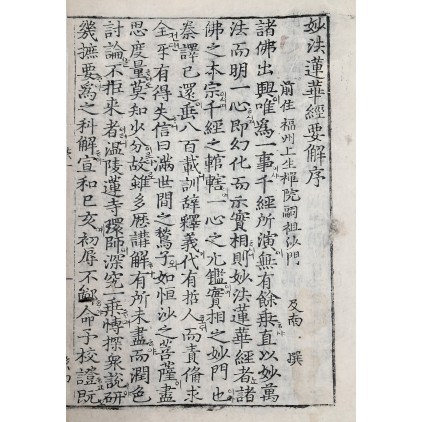 妙法蓮華經要解序
前住福州上生禪院嗣祖沙門 及南 撰
諸佛出興唯爲一事千經所演無有餘乗直以妙萬
法而明一心即幻化而示實相則妙法蓮華經者諸
佛之本宗千經之輨轄一心之元鑑實相之妙門也
秦譯已還垂八百載訓辭釋義代有哲人而責俻求
全乎有得失信曰滿世間之鶖子如恒沙之菩薩盡
思度量莫知少分故雖多歷講解有所未盡而潤色
討論不拒來者温陵蓮寺環師深究一乗愽探衆說研
幾摭要爲之科解宣和己亥初辱不鄙命予校證既